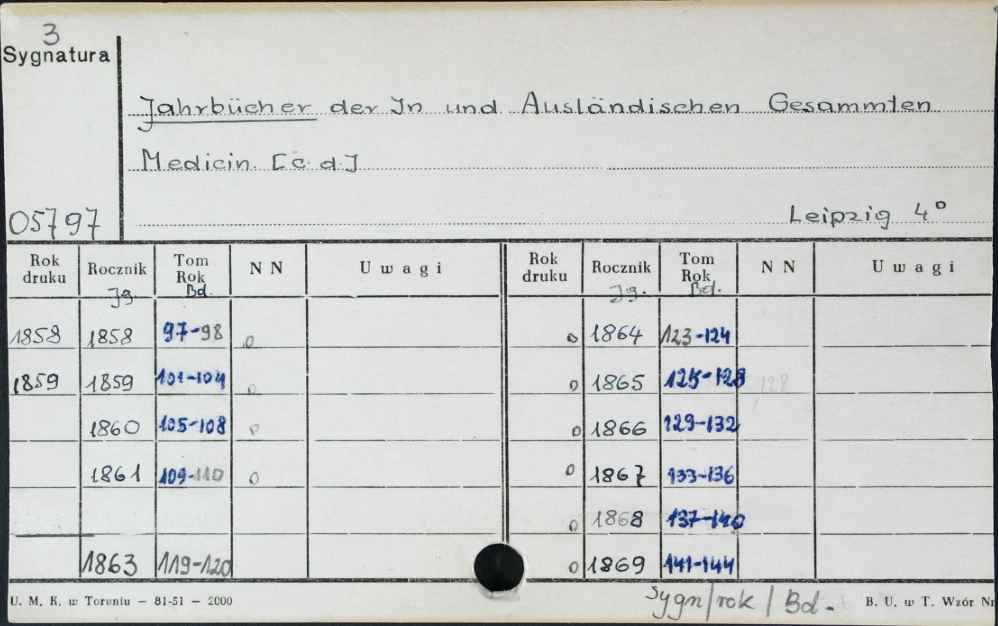 3
Sygnatura
Jahrbücher der In und Ausländischen Gesammten
Medicin. [c. d.]
05797
Leipzig 4°
Rok druku Rocznik Tom Rok N N Uwagi Rok druku Rocznik Tom Rok N N Uwagi
Jg. Bd. Jg. Bd.
1858 1858 97-98 o o 1864 123-124
1859 1859 101-104 o o 1865 125-128 128
1860 105-108 o o 1866 129-132
1861 109-110 o o 1867 133-136
o 1868 137-140
1863 119-120 o 1869 141-144
Sygn/rok/Bd.
U. M. K. w Toruniu — 81-51 — 2000 B. U. w T. Wzór Nr